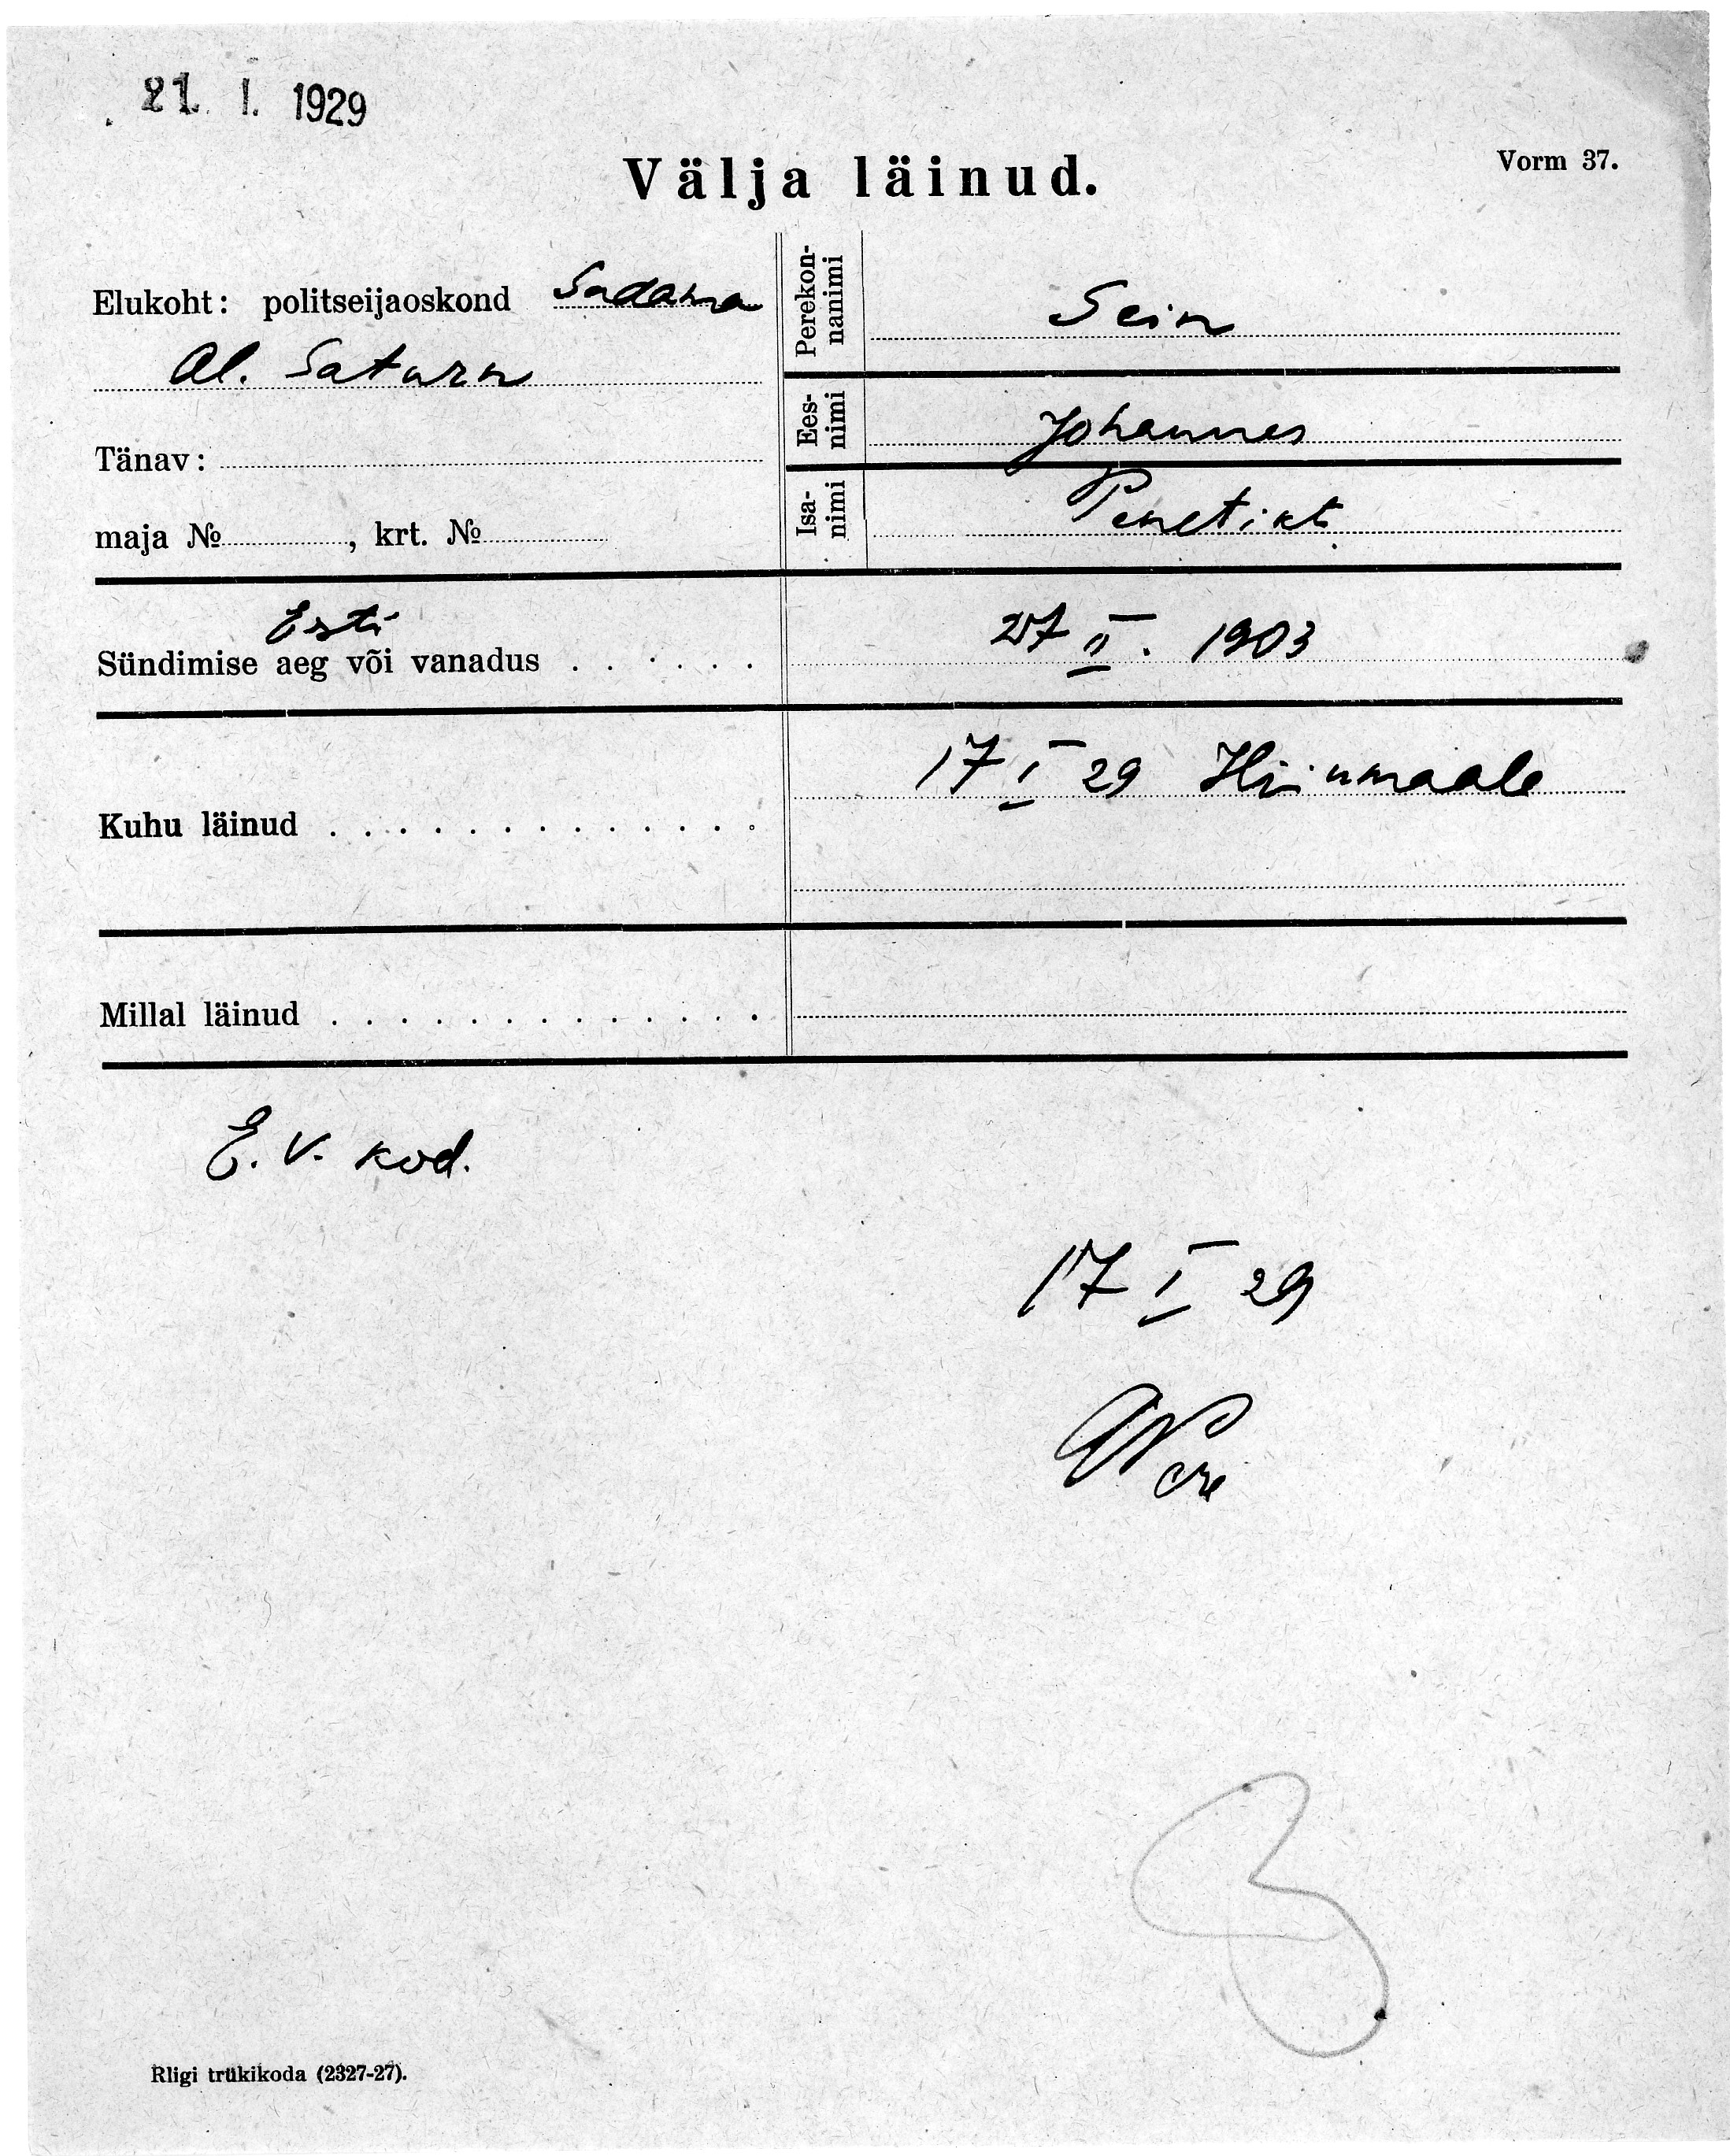 21. I. 1929
Välja läinud.
Vorm 37.
Elukoht: politseijaoskond Sadama
Al. Saturn
Tänav:
maja №, krt. №
Perekon-
nanimi
Sein
Ees-
nimi
Johannes
Isa-
nimi
Penetikt
Esti
Sündimise aeg või vanadus . . . . . .
27 II. 1903
Kuhu läinud . . . . . . . . . . . . .
17 I 29 Hiiumaale
Millal läinud . . . . . . . . . . . . .
E. V. kod.
17 I 29
Riigi trükikoda (2327-27).